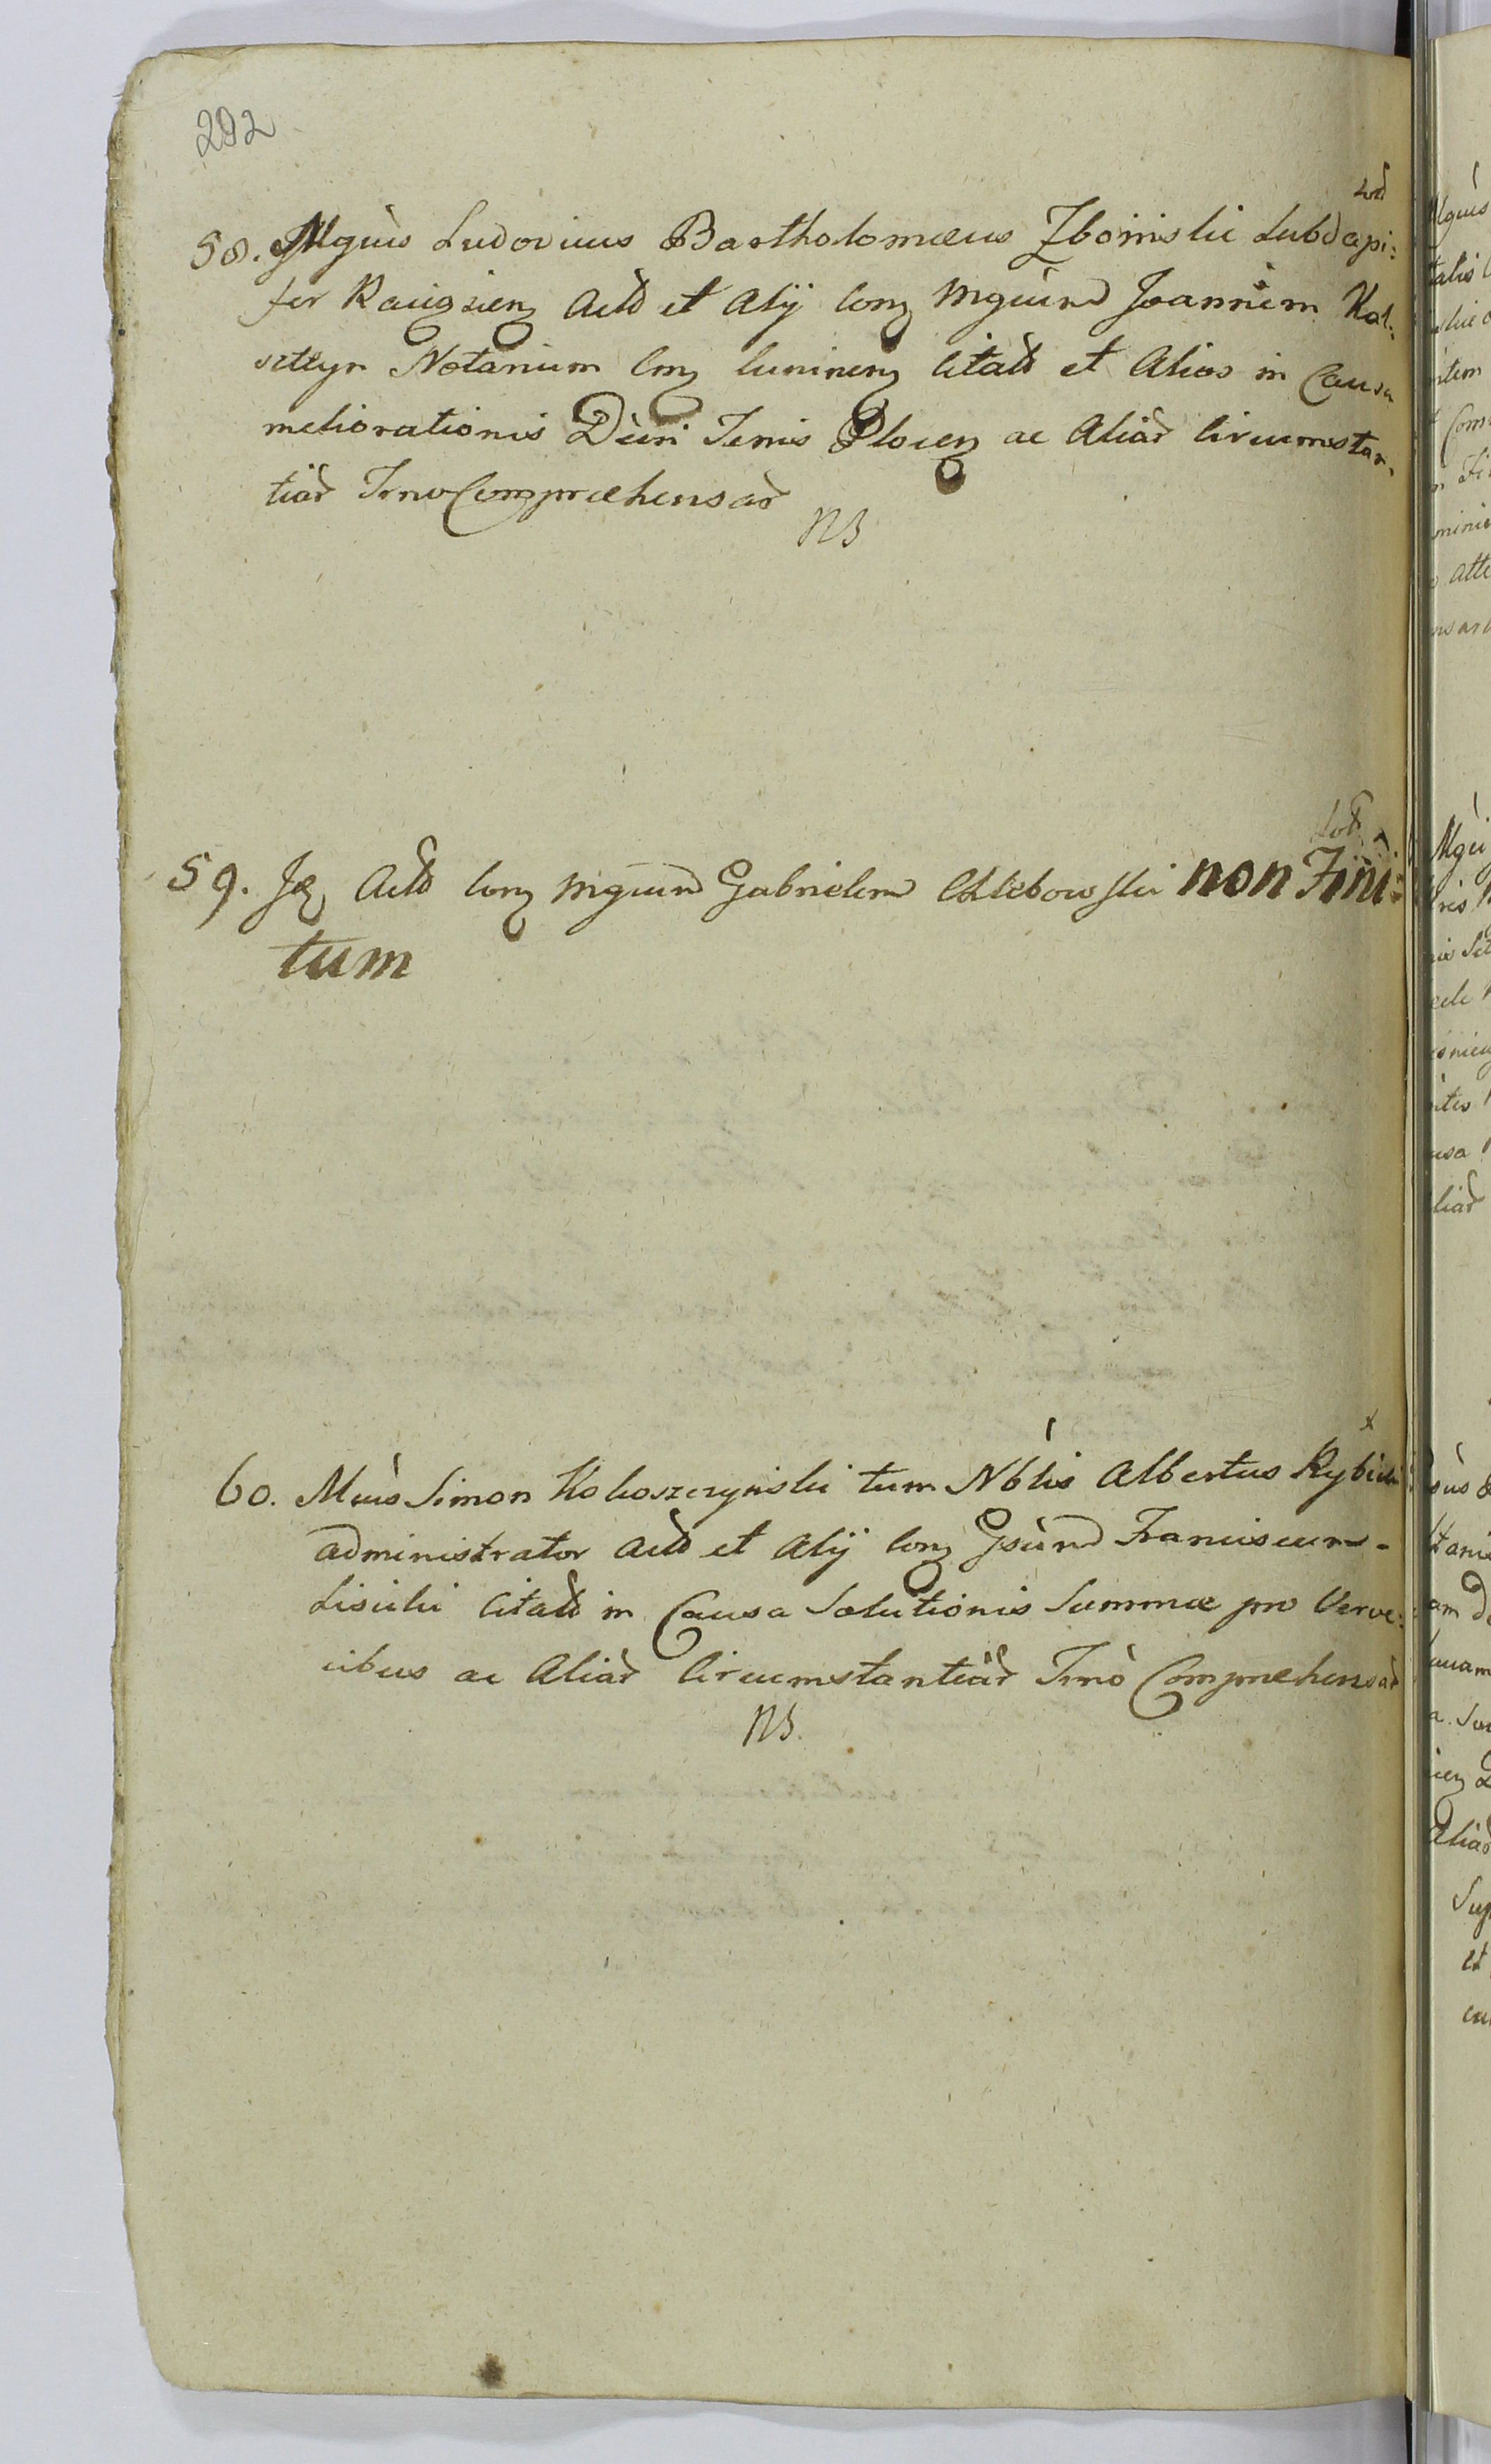 292
58. Mgnus Ludovicus Bartholomæus Zboinski Subdapi:
fer Raciąziens Actô et Alij Cons Mgnum Joannem Kal:
szteyn Notarium Cons Citatô et Alios in Causa
meliorationis Dcti Temis Plocens ac Aliar̃ Circumstan:
tiar̃ Tmo Compræhensar̃
NB
59. Je Actô Cons Mgnum Gabrielem Chlebowski non Fini:
tum
60. Mcus Simon Kokoszczynski tum Nblis Albertus Rybicki
administrator Actô et Alij Cons Gsum Franciscum
Lisicki Citatô in Causa Solutionis Summæ pro Verve:
cibus ac Aliar̃ Circumstantiar̃ Tmo Compræhensar̃
NB.